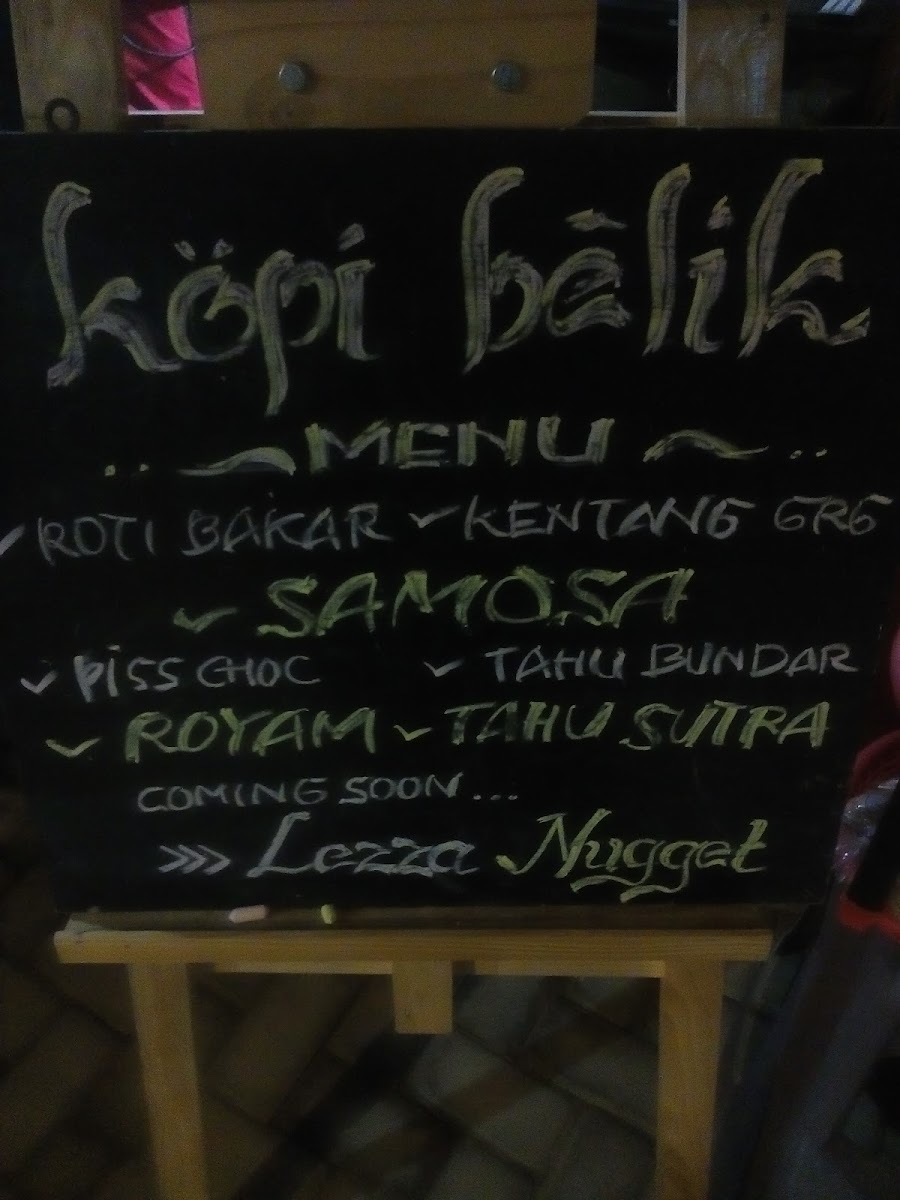 köpi bēlik
.. ~MENU~ ..
✓ ROTI BAKAR ✓ KENTANG GRG
✓ SAMOSA
✓ PISS CHOC ✓ TAHU BUNDAR
✓ ROYAM ✓ TAHU SUTRA
COMING SOON...
>>> Lezza Nugget